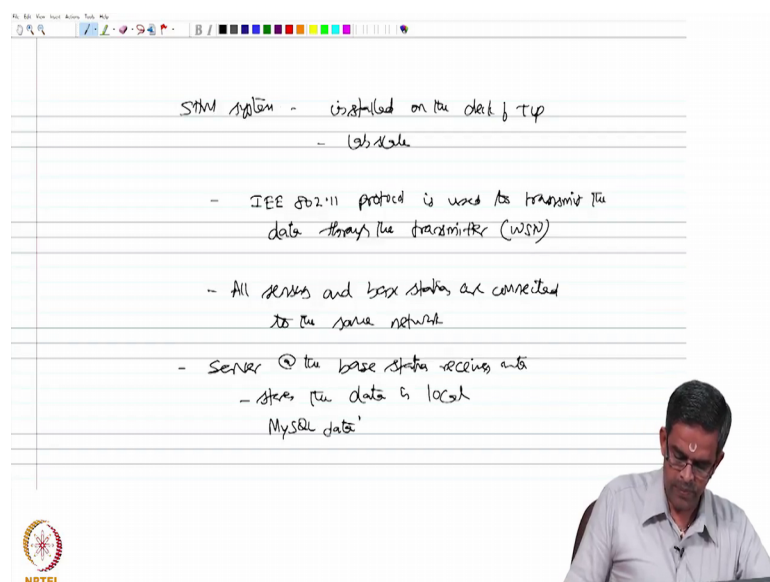 File Edit View Insert Actions Tools Help
B I
SHM system - installed on the deck of TLP
- lab scale
- IEE 802.11 protocol is used to transmit the
data through the transmitter (WSN)
- All sensors and base station are connected
to the same network
- Server @ the base station receives
- stores the data local
MySQL data
NPTEL